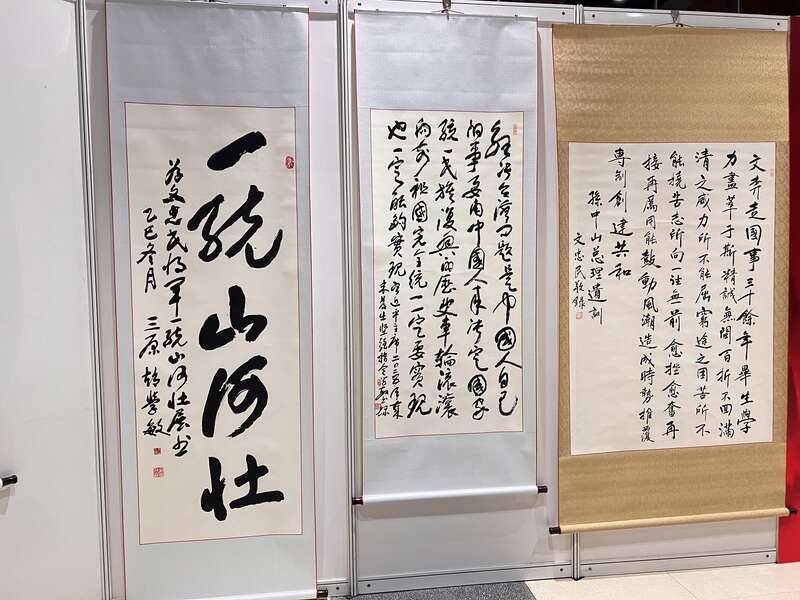 文奔走國事三十餘年畢生學
力盡萃于斯精誠無間百折不回滿
清之威力所不能屈窮途之困苦所不
能撓吾志所向一往無前愈挫愈奮再
接再厲用能鼓動風潮造成時勢推覆
專制創建共和
孫中山總理遺訓
文忠民敬錄
解决台湾问题是中國人自己
的事要由中國人来决定國家
统一民族復興的歷史車輪滚滚
向前祖國完全统一一定要實現
也一定能夠實現
一统山河壮
為文忠民将軍一统山河壮展书
乙巳冬月 三原 趙學敏